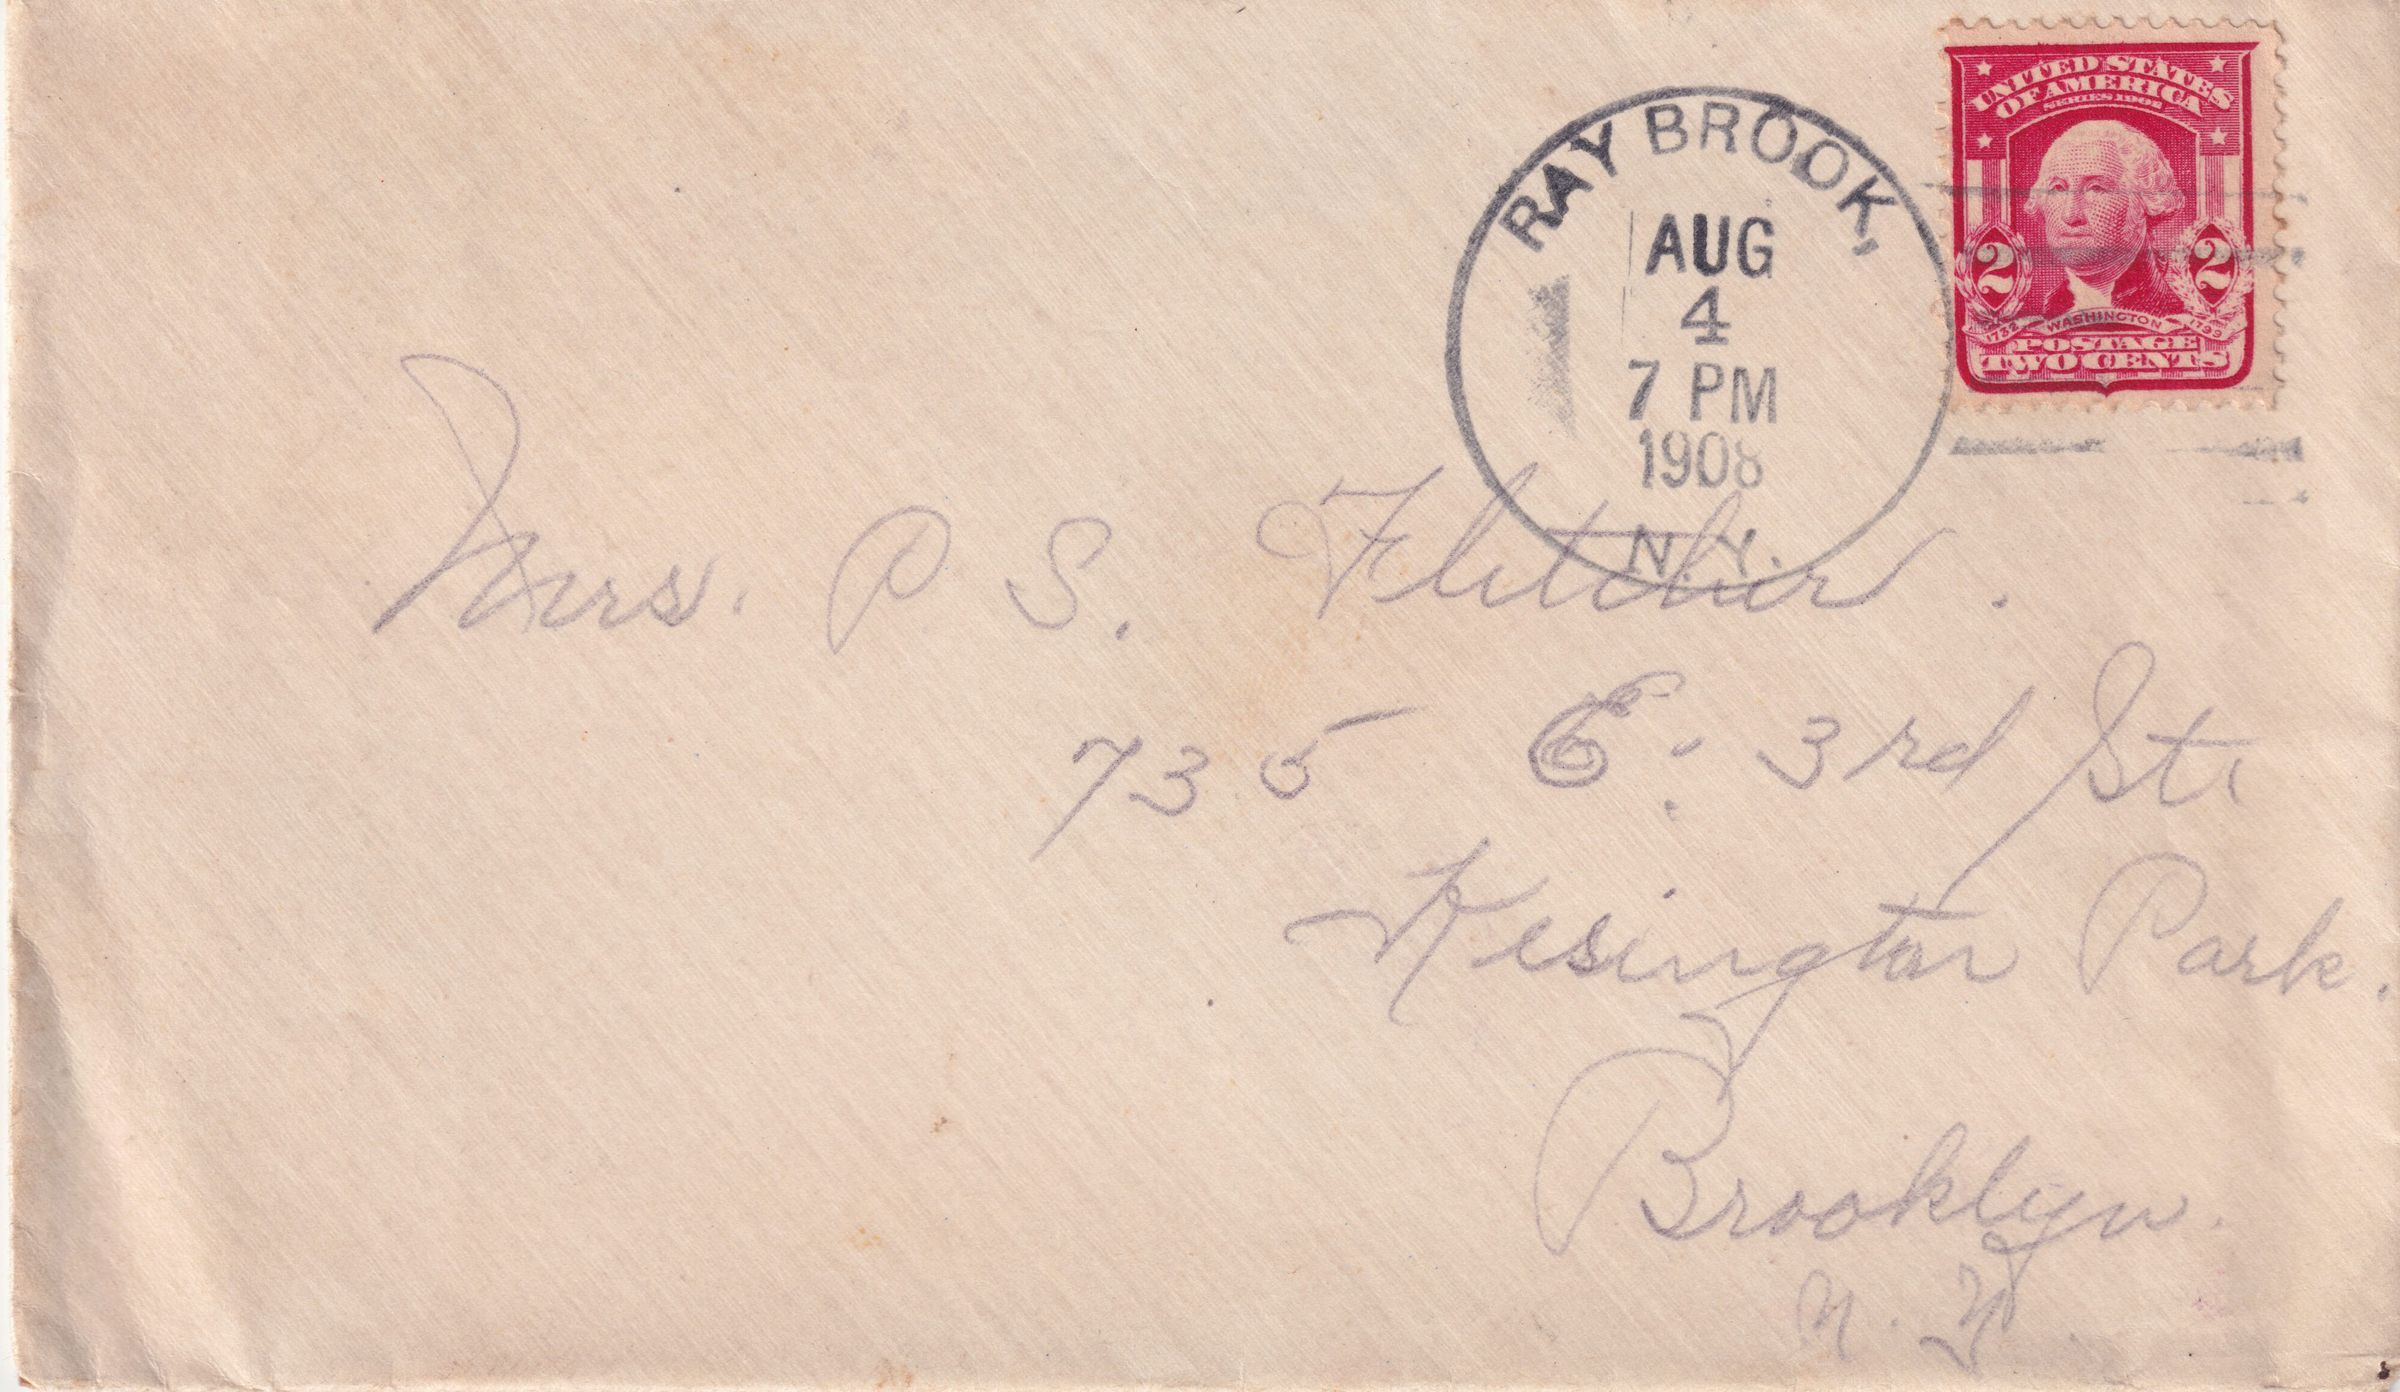 UNITED STATES
OF AMERICA
SERIES 1902
2 2
1732 WASHINGTON 1799
POSTAGE
TWO CENTS
RAY BROOK,
AUG
4
7 PM
1908
N.Y.
Mrs. P. S. Fletcher.
735 E. 3rd St.
Kesington Park.
Brooklyn.
N. Y.